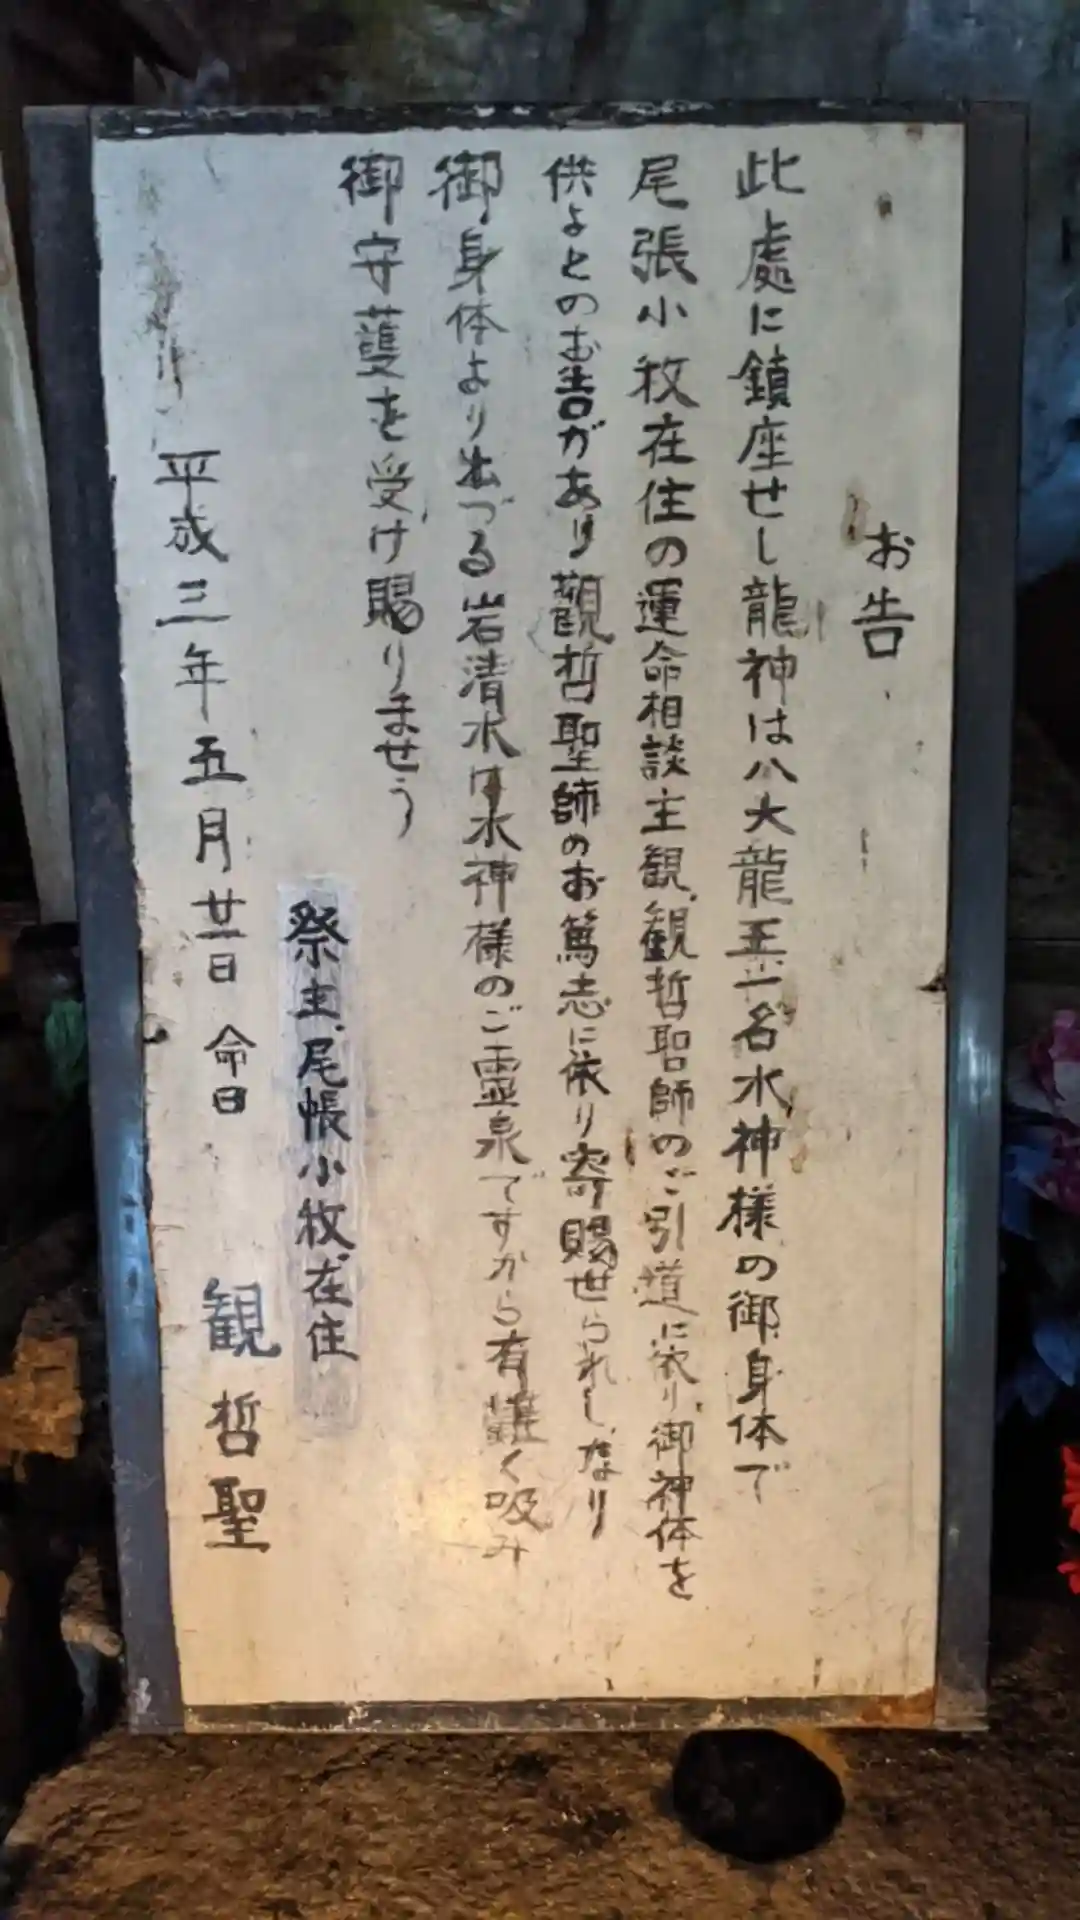 お告
此處に鎮座せし龍神は八大龍王一名水神様の御身体で
尾張小牧在住の運命相談主観観哲聖師のご引道に依り御神体を
供よとのお告があり觀哲聖師のお篤志に依り寄賜せられしなり
御身体より出づる岩清水は水神様のご霊泉ですから有難く吸み
御守護を受け賜りませう
祭主尾帳小牧在住
平成三年五月廿一日 命日 観哲聖